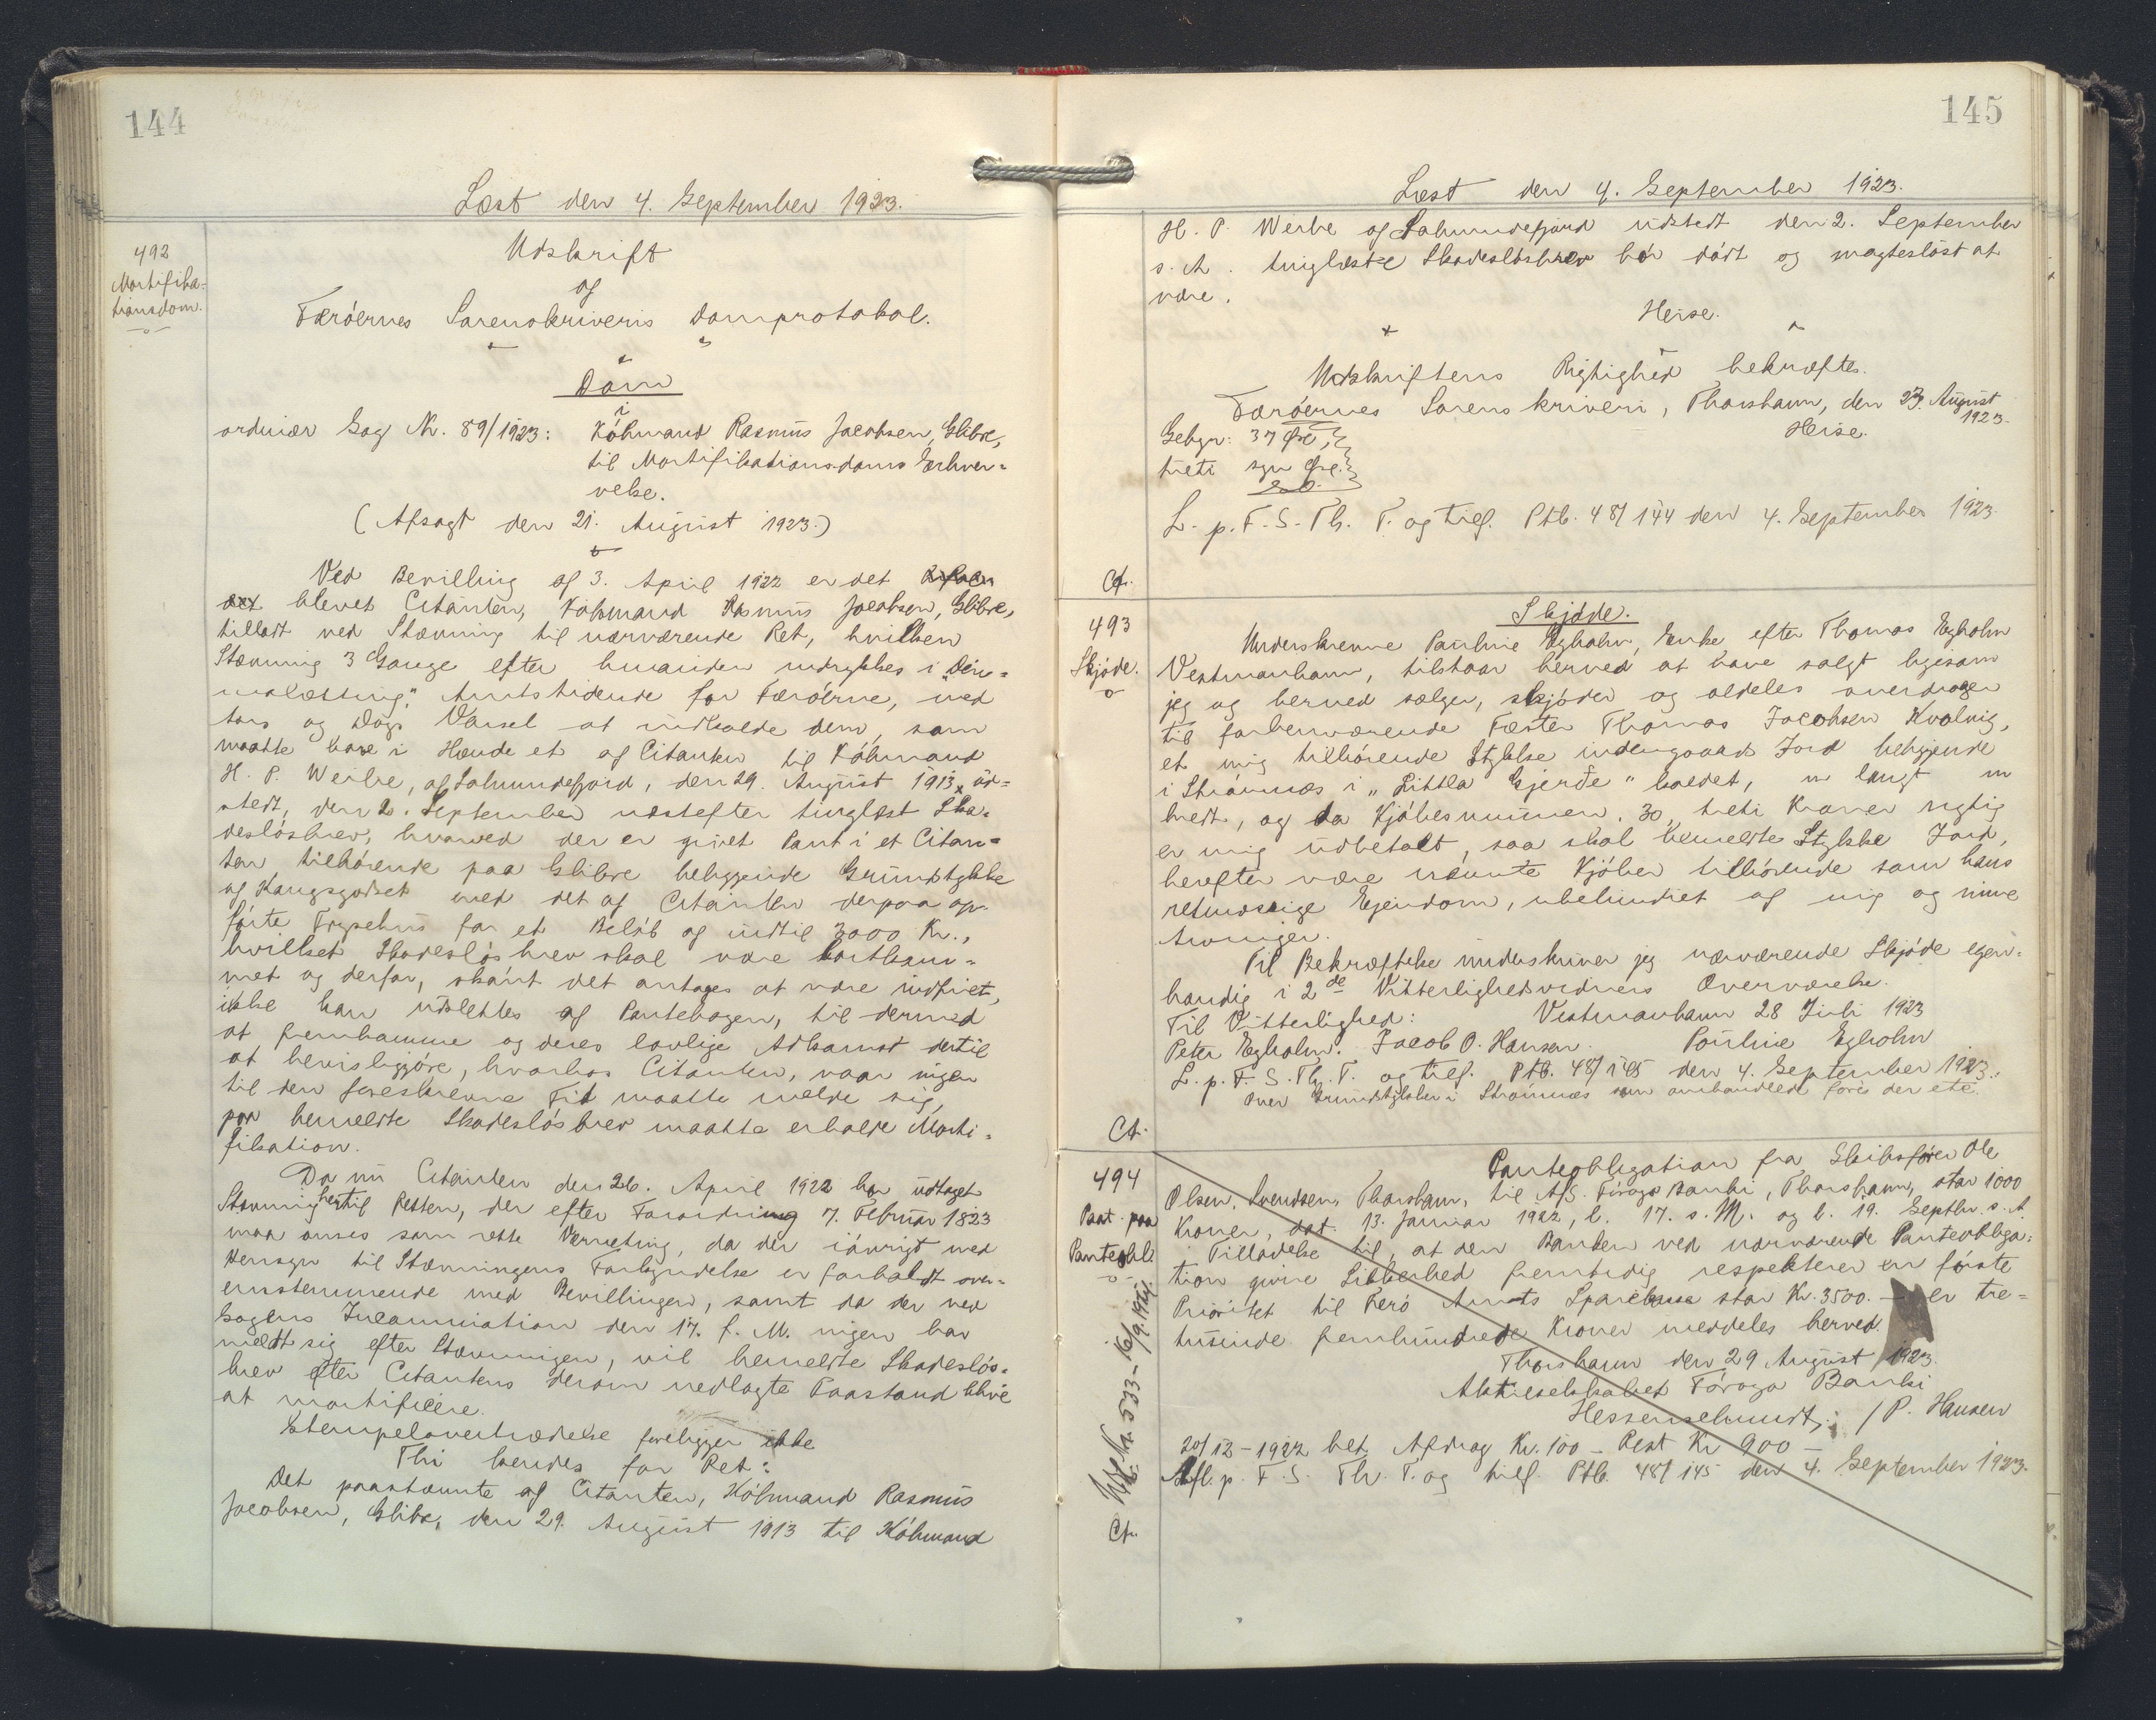 144
Læst den 4. September 1923.
492
Mortifika-
tionsdom.
Udskrift
af
Færöernes Sorenskriveris Domprotokol.
Dom
i
ordinær Sag Nr. 89/1923: Köbmand Rasmus Jacobsen, Glibre,
til Mortifikationsdoms Erhver-
velse.
(Afsagt den 21. August 1923.)
Ved Bevilling af 3. April 1922 er det
det blevet Citanten, Köbmand Rasmus Jacobsen, Glibre,
tilladt ved Stævning til nærværende Ret, hvilken
Stævning 3 Gange efter hinanden indrykkes i „Dim-
malætting", Amtstidende for Færöerne, med
Aars og Dags Varsel at indkalde dem, som
maatte have i Hænde et af Citanten til Köbmand
H. P. Weihe, af Salmundefjord, den 29. August 1913 ud-
stedt, den 2. September næstefter tinglæst Ska-
deslösbrev, hvorved der er givet Pant i et Citan-
ten tilhörende paa Glibre beliggende Grundstykke
af Kongsgodset med det af Citanten derpaa op-
förte Frysehus for et Belöb af indtil 3000 Kr.,
hvilket Skadeslösbrev skal være bortkom-
met og derfor, skönt det antages at være indfriet,
ikke kan udslettes af Pantebogen, til dermed
at fremkomme og deres lovlige Adkomst dertil
at bevisliggjöre, hvorhos Citanten, naar ingen
til den foreskrevne Tid maatte melde sig,
paa bemeldte Skadeslösbrev maatte erholde Morti-
fikation.
Da nu Citanten den 26. April 1922 har udtaget
Stævning hertil Retten, der efter Forordning 7. Februar 1823
maa anses som rette Værneting, da der iövrigt med
Hensyn til Stævningens Forkyndelse er forholdt over-
ensstemmende med Bevillingen, samt da der ved
Sagens Incamination den 17. f. M. ingen har
meldt sig efter Stævningen, vil bemeldte Skadeslös-
brev efter Citantens derom nedlagte Paastand blive
at mortificere.
Stempelovertrædelse foreligger ikke
Thi kendes for Ret:
Det paastævnte af Citanten, Köbmand Rasmus
Jacobsen, Glibre, den 29. August 1913 til Köbmand
145
Læst den 4. September 1923.
H. P. Weihe af Salmundefjord udstedt den 2. September
s. A. tinglæste Skadeslösbrev bör dödt og magteslöst at
være.
Heise.
Udskriftens Rigtighed bekræftes.
Færöernes Sorenskriveri, Thorshavn, den 23. August
1923.
Heise.
Gebyr: 37 Öre,
treti syv Öre.
L. p. F. S. Th. T. og tilf. Ptb. 48/144 den 4. September 1923.
Cf.
493
Skjöde.
Skjöde.
Underskrevne Pauline Egholm, Enke efter Thomas Egholm
Vestmanhavn, tilstaar herved at have solgt ligesom
jeg og herved sælger, skjöder og aldeles overdrager
til forhenværende Fæster Thomas Jacobsen Kvalvig,
et mig tilhörende Stykke indengaards Jord beliggende
i Strömnæs i „Littla Gjerðe" kaldet, m langt m
bredt, og da Kjöbesummen, 30, treti Kroner rigtig
er mig udbetalt, saa skal bemeldte Stykke Jord,
herefter være nævnte Kjöber tilhörende som hans
retmæssige Ejendom, ubehindret af mig og mine
Arvinger.
Til Bekræftelse underskriver jeg nærværende Skjöde egen-
handig i 2de Vitterlighedsvidners Overværelse.
Til Vitterlighed: Vestmanhavn 28 Juli 1923
Peter Egholm. Jacob O. Hansen. Pauline Egholm
L. p. F. S. Th. T. og tilf. Ptb. 48/145 den 4. September 1923.
Over Grundstykker i Strömnæs som omhandlet före der ete.
Cf.
494
Paat. paa
Panteobl.
Panteobligation fra Skibsförer Ole
Olsen, Svendsen, Thorshavn, til A/S. Föroya Banki, Thorshavn, stor 1000
Kroner, dat. 13. Januar 1922, l. 17. s. M. og l. 19. Septbr. s. A
Tilladelse til, at den Banken ved nærværende Panteobliga-
tion givne Sikkerhed fremtidig respekterer en förste
Prioritet til Færö Amts Sparekasse stor Kr. 3500. — er tre-
tusinde femhundrede Kroner meddeles herved.
Thorshavn den 29 August 1923.
Aktieselskabet Föroya Banki
/P. Hansen
20/12-1922 bet. Afdrag Kr. 100 - Rest Kr 900 —
Afl. p. F. S. Th. T. og tilf. Ptb. 48/145 den 4. September 1923.
Udsl. Nr. 533 - 16/9.1924.
Cf.